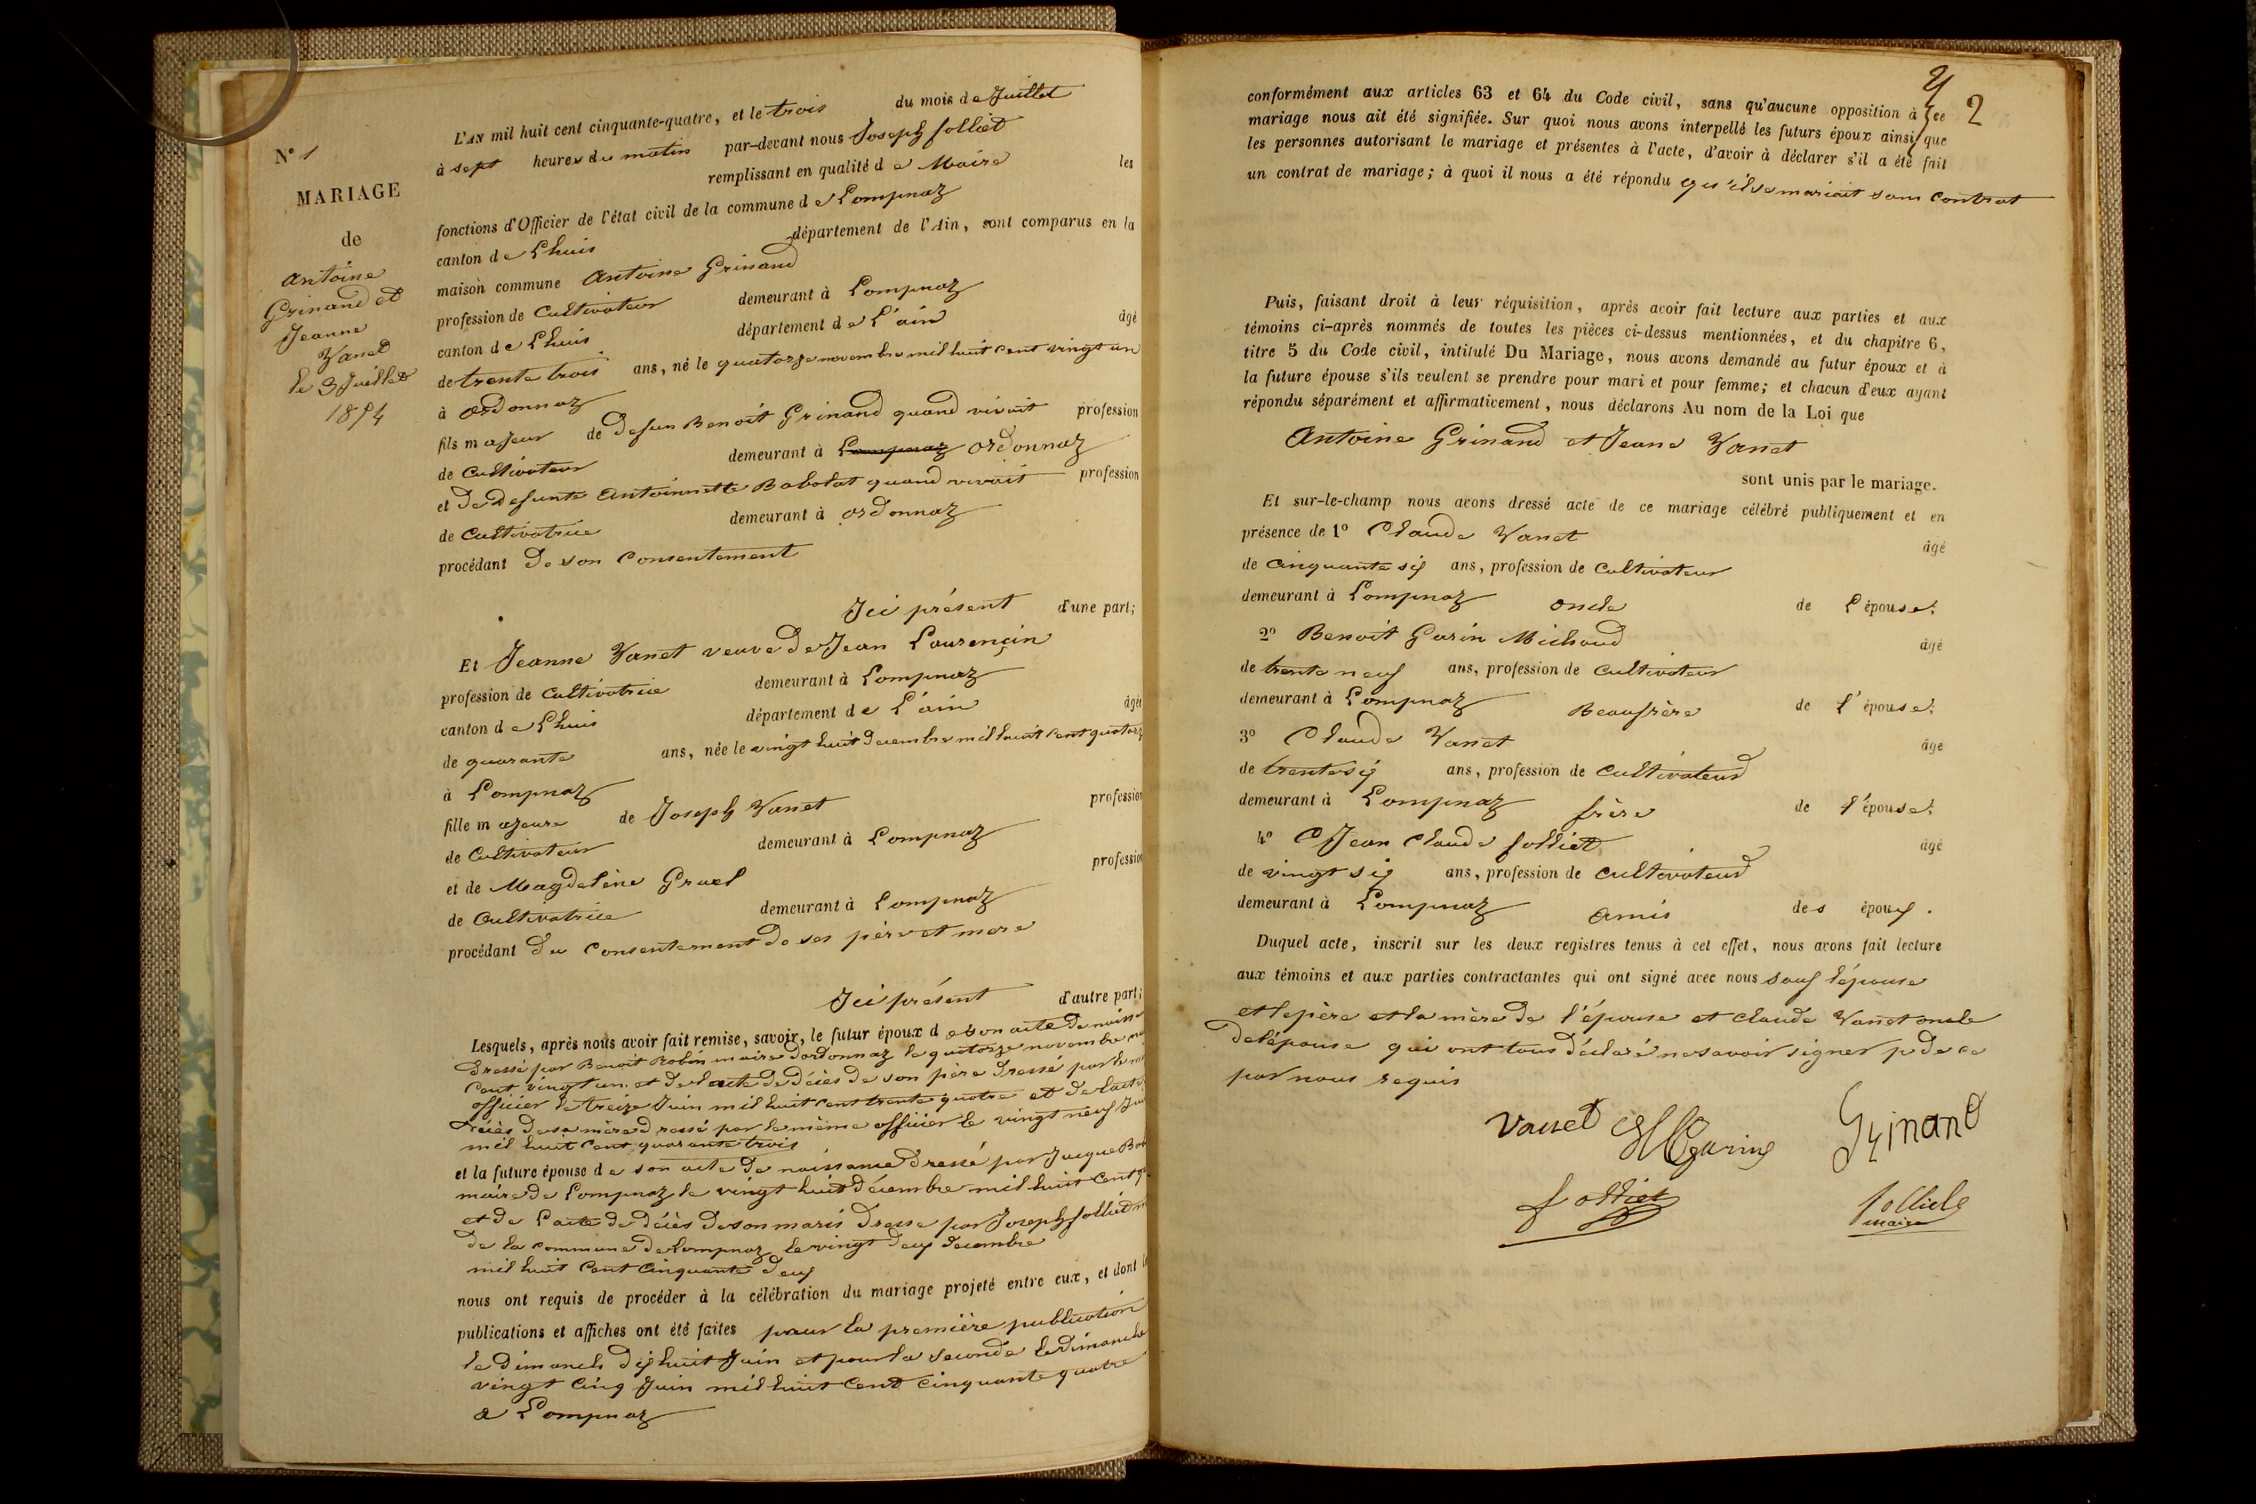 N° 1
MARIAGE
de
Antoine
Grinand et
Jeanne
Vanet
le 3 Juillet
1854
L'AN mil huit cent cinquante-quatre, et le trois du mois de Juillet
à sept heures du matin par-devant nous Joseph Jolliet
remplissant en qualité de Maire les
fonctions d'Officier de l'état civil de la commune de Lompnaz
canton de Lhuis département de l'Ain, sont comparus en la
maison commune Antoine Grinand
profession de Cultivateur demeurant à Lompnaz
canton de Lhuis département de L'ain âgé
de trente trois ans, né le quatorze novembre mil huit cent vingt un
à ordonnaz
fils majeur de defun Benoit Grinand quand vivait profession
de Cultivateur demeurant à Lompnaz ordonnaz
et de defunte Antoinnette Babolat quand vivait profession
de Cultivatrice demeurant à ordonnaz
procédant de son consentement
Ici présent d'une part;
Et Jeanne Vanet veuve de Jean Laurençin
profession de Cultivatrice demeurant à Lompnaz
canton de Lhuis département de L'ain âgée
de quarante ans, née le vingt huit decembre mil huit cent quatorz
à Lompnaz
fille majeure de Joseph Vanet profession
de Cultivateur demeurant à Lompnaz
et de Magdeléine Gruel profession
de Cultivatrice demeurant à Lompnaz
procédant du consentement de ses père et mere
Ici présent d'autre part;
Lesquels, après nous avoir fait remise, savoir, le futur époux de son acte de naiss
dressé par Benoit Robin maire dordonnaz le quatorze novembre
cent vingt un et de lacte de décès de son père dressé par le
officier le treize Juin mil huit cent trente quatre et de lacte
décès de sa mère dressé par le même officier le vingt neuf
mil huit cent quarante trois
et la future épouse de son acte de naissance dressé par Jacque
maire de Lompnaz le vingt huit décembre mil huit cent
et de Lacte de décès de son maris dresse par Joseph Jolliet
de la commune de Lompnaz le vingt deux decembre
mil huit cent cinquante deux
nous ont requis de procéder à la célébration du mariage projeté entre eux, et dont
publications et affiches ont été faites pour la première publication
le dimanch dix huit Juin et pour la seconde le dimanche
vingt cinq Juin mil huit cent cinquante quatre
a Lompnaz
2
conformément aux articles 63 et 64 du Code civil, sans qu'aucune opposition à ce
mariage nous ait été signifiée. Sur quoi nous avons interpellé les futurs époux ainsi que
les personnes autorisant le mariage et présentes à l'acte, d'avoir à déclarer s'il a été fait
un contrat de mariage; à quoi il nous a été répondu qu'il se mariait sans contrat
Puis, faisant droit à leur réquisition, après avoir fait lecture aux parties et aux
témoins ci-après nommés de toutes les pièces ci-dessus mentionnées, et du chapitre 6,
titre 5 du Code civil, intitulé Du Mariage, nous avons demandé au futur époux et à
la future épouse s'ils veulent se prendre pour mari et pour femme; et chacun d'eux ayant
répondu séparément et affirmativement, nous déclarons Au nom de la Loi que
Antoine Grinand et Jeane Vanet
sont unis par le mariage.
Et sur-le-champ nous avons dressé acte de ce mariage célébré publiquement et en
présence de 1° Claude Vanet âgé
de cinquante six ans, profession de Cultivateur
demeurant à Lompnaz oncle de L'épouse.
2° Benoit Garin Michaud âgé
de trente neuf ans, profession de Cultivateur
demeurant à Lompnaz Beaufrère de l'épouse.
3° Claude Vanet âgé
de trente six ans, profession de Cultivateur
demeurant à Lompnaz frère de l'épouse.
4° Jean Claude Jolliet âgé
de vingt six ans, profession de Cultivateur
demeurant à Lompnaz amis des époux.
Duquel acte, inscrit sur les deux registres tenus à cet effet, nous avons fait lecture
aux témoins et aux parties contractantes qui ont signé avec nous sauf l'épouse
et le père et la mère de l'épouse et claude Vanet oncle
de lépouse qui ont tous déclaré ne savoir signer p de ce
par nous requis
Vanet Garin Grinand
Jolliet Jolliet
maire